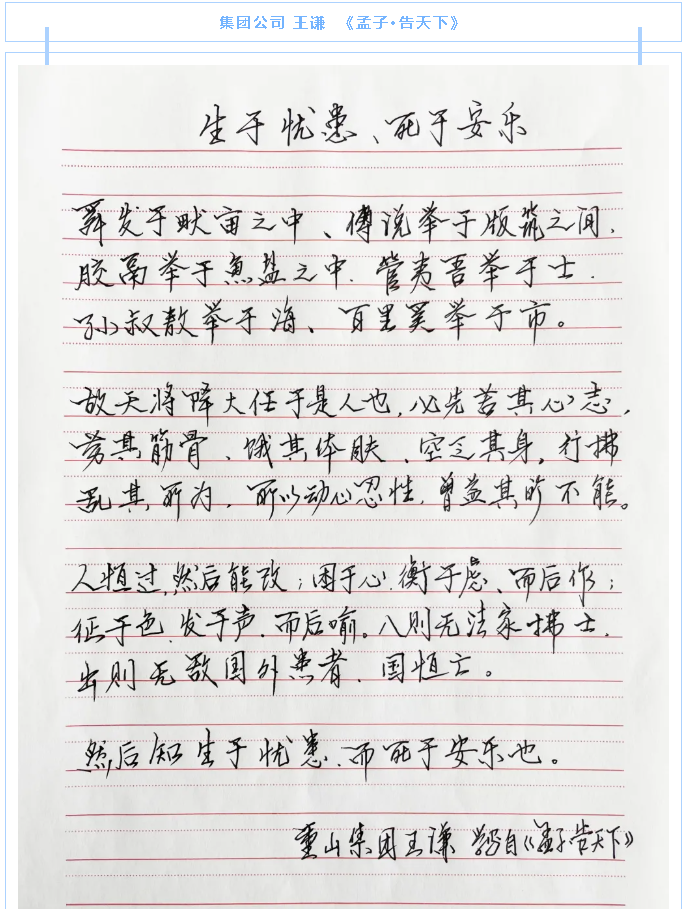 集团公司 王谦 《孟子·告天下》
生于忧患、死于安乐
舜发于畎亩之中、傅说举于版筑之间，
胶鬲举于鱼盐之中，管夷吾举于士，
孙叔敖举于海、百里奚举于市。
故天将降大任于是人也，必先苦其心志，
劳其筋骨、饿其体肤、空乏其身，行拂
乱其所为，所以动心忍性，曾益其所不能。
人恒过，然后能改；困于心，衡于虑、而后作；
征于色，发于声，而后喻。入则无法家拂士，
出则无敌国外患者，国恒亡。
然后知生于忧患，而死于安乐也。
重山集团王谦 学写自《孟子·告天下》